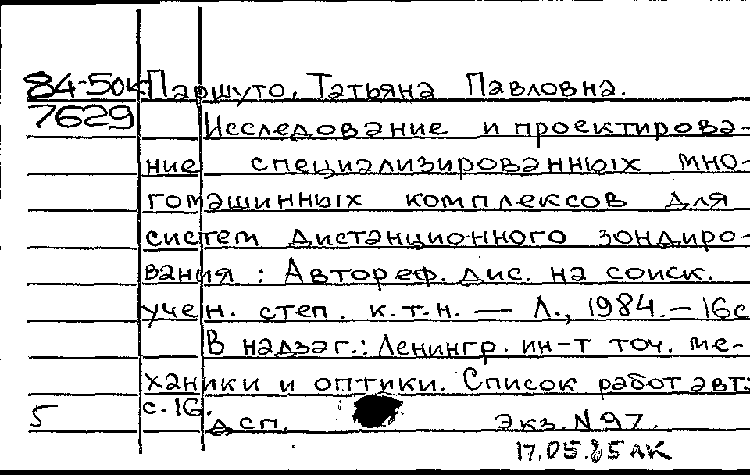 84-50к Паршуто, Татьяна Павловна.
7629 Исследование и проектирова-
ние специализированных мно-
гомашинных комплексов для
систем дистанционного зондиро-
вания : Автореф. дис. на соиск.
учен. степ. к.т.н. — Л., 1984. — 16с
В надзаг.: Ленингр. ин-т точ. ме-
ханики и оптики. Список работ авт.
5 с. 16. дсп. Экз. N 97.
17.05.85 АК